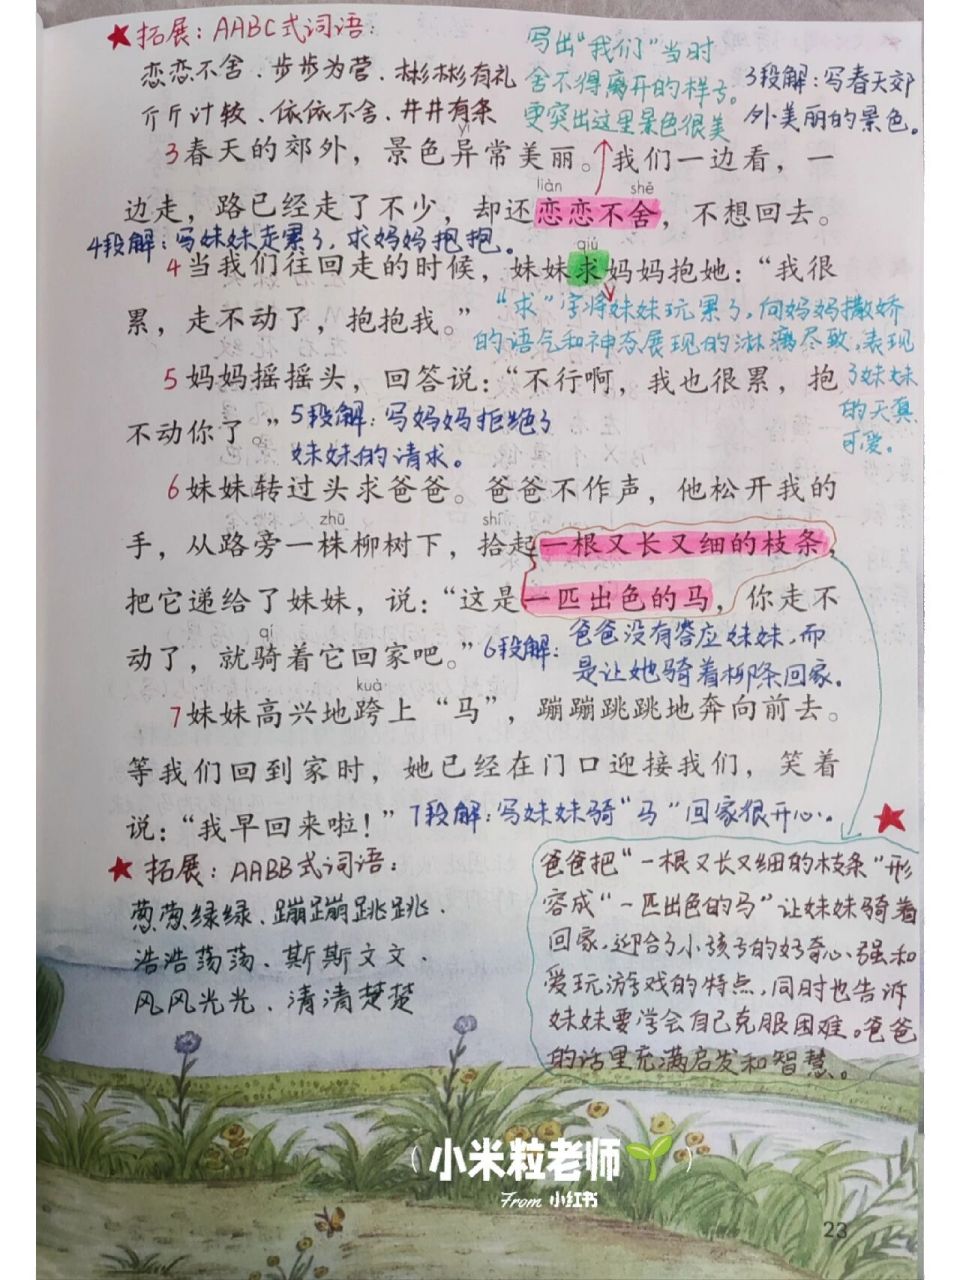 ★拓展：AABC式词语：
恋恋不舍、步步为营、彬彬有礼
斤斤计较、依依不舍、井井有条
写出“我们”当时
舍不得离开的样子。
更突出这里景色很美
3段解：写春天郊
外美丽的景色。
yì
3春天的郊外，景色异常美丽。我们一边看，一
liàn shě
边走，路已经走了不少，却还恋恋不舍，不想回去。
4段解：写妹妹走累了，求妈妈抱抱。
qiú
4当我们往回走的时候，妹妹求妈妈抱她：“我很
累，走不动了，抱抱我。”
“求”字将妹妹玩累了，向妈妈撒娇
的语气和神态展现的淋漓尽致，表现
了妹妹
的天真
可爱。
5妈妈摇摇头，回答说：“不行啊，我也很累，抱
不动你了。”
5段解：写妈妈拒绝了
妹妹的请求。
6妹妹转过头求爸爸。爸爸不作声，他松开我的
zhū shí
手，从路旁一株柳树下，拾起一根又长又细的枝条，
把它递给了妹妹，说：“这是一匹出色的马，你走不
qí
动了，就骑着它回家吧。”
6段解：爸爸没有答应妹妹，而
是让她骑着柳条回家。
kuà
7妹妹高兴地跨上“马”，蹦蹦跳跳地奔向前去。
等我们回到家时，她已经在门口迎接我们，笑着
说：“我早回来啦！”
7段解：写妹妹骑“马”回家很开心。
★拓展：AABB式词语：
葱葱绿绿、蹦蹦跳跳、
浩浩荡荡、斯斯文文、
风风光光、清清楚楚
★
爸爸把“一根又长又细的枝条”形
容成“一匹出色的马”让妹妹骑着
回家，迎合了小孩子的好奇心强和
爱玩游戏的特点，同时也告诉
妹妹要学会自己克服困难。爸爸
的话里充满启发和智慧。
（小米粒老师🌱）
From 小红书
23